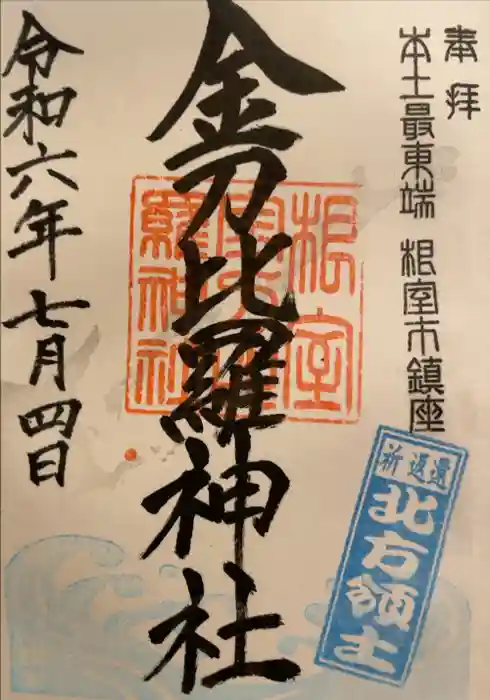 奉拝
本土最東端 根室市鎮座
金刀比羅神社
根室
金刀比
羅神社
令和六年七月四日
祈返還
北方領土